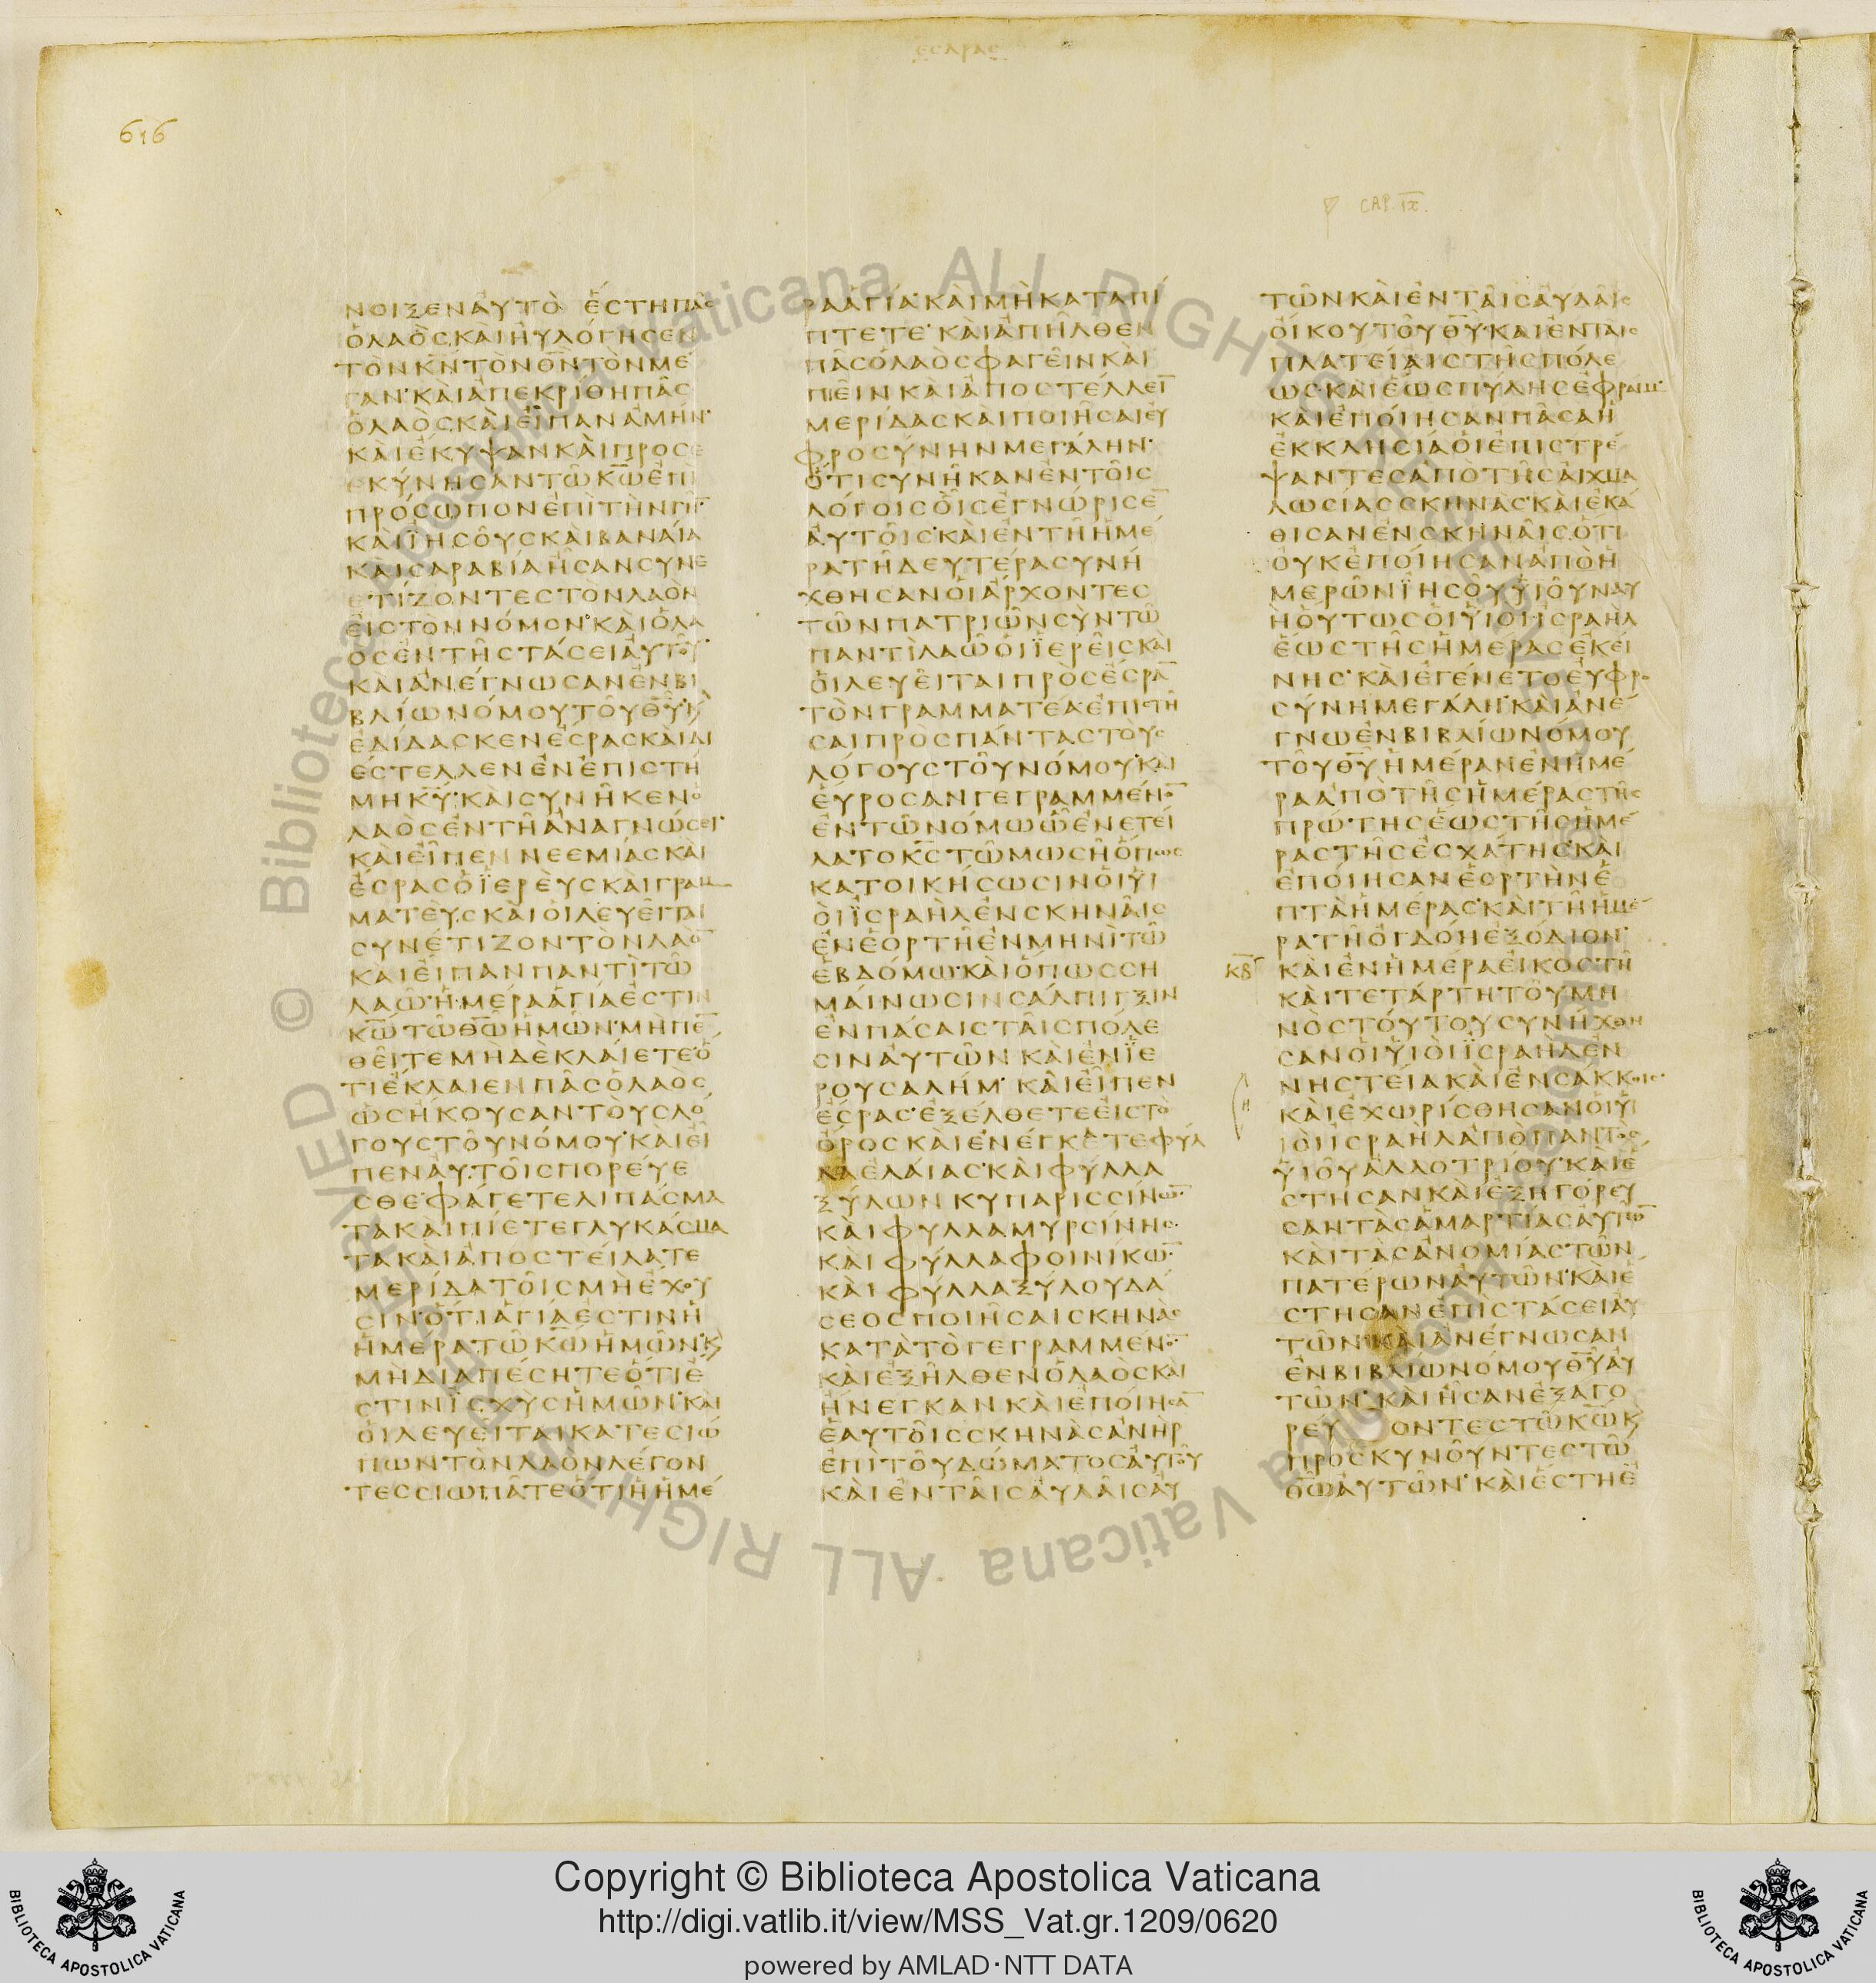 ΕΣΔΡΑΣ
616
CAP. IX.
ΝΟΙΞΕΝΑΥΤΟ ΕΣΤΗΠΑΣ
ΟΛΑΟΣΚΑΙΗΥΛΟΓΗΣΕΝ
ΤΟΝΚΝΤΟΝΘΝΤΟΝΜΕ
ΓΑΝ·ΚΑΙΑΠΕΚΡΙΘΗΠΑΣ
ΟΛΑΟΣΚΑΙΕΙΠΑΝΑΜΗΝ·
ΚΑΙΕΚΥΨΑΝΚΑΙΠΡΟΣΕ
ΚΥΝΗΣΑΝΤΩΚΩΕΠΙ
ΠΡΟΣΩΠΟΝΕΠΙΤΗΝΓΗ·
ΚΑΙΪΗΣΟΥΣΚΑΙΒΑΝΑΙΑ
ΚΑΙΣΑΡΑΒΙΑΗΣΑΝΣΥΝΕ
ΤΙΖΟΝΤΕΣΤΟΝΛΑΟΝ
ΕΙΣΤΟΝΝΟΜΟΝ·ΚΑΙΟΛΑ
ΟΣΕΝΤΗΣΤΑΣΕΙΑΥΤΟΥ·
ΚΑΙΑΝΕΓΝΩΣΑΝΕΝΒΙ
ΒΛΙΩΝΟΜΟΥΤΟΥΘΥ·Κ
ΕΔΙΔΑΣΚΕΝΕΣΡΑΣΚΑΙΔΙ
ΕΣΤΕΛΛΕΝΕΝΕΠΙΣΤΗ
ΜΗΚΥ·ΚΑΙΣΥΝΗΚΕΝΟ
ΛΑΟΣΕΝΤΗΑΝΑΓΝΩΣΕΙ·
ΚΑΙΕΙΠΕΝΝΕΕΜΙΑΣΚΑΙ
ΕΣΡΑΣΟΪΕΡΕΥΣΚΑΙΓΡΑΜ
ΜΑΤΕΥΣΚΑΙΟΙΛΕΥΕΙΤΑΙ
ΣΥΝΕΤΙΖΟΝΤΟΝΛΑΟ
ΚΑΙΕΙΠΑΝΠΑΝΤΙΤΩ
ΛΑΩ·ΗΜΕΡΑΑΓΙΑΕΣΤΙΝ
ΚΩΤΩΘΩΗΜΩΝ·ΜΗΠΕ
ΘΕΙΤΕΜΗΔΕΚΛΑΙΕΤΕ·Ο
ΤΙΕΚΛΑΙΕΝΠΑΣΟΛΑΟΣ
ΩΣΗΚΟΥΣΑΝΤΟΥΣΛΟ
ΓΟΥΣΤΟΥΝΟΜΟΥ·ΚΑΙΕΙ
ΠΕΝΑΥΤΟΙΣΠΟΡΕΥΕ
ΣΘΕΦΑΓΕΤΕΛΙΠΑΣΜΑ
ΤΑΚΑΙΠΙΕΤΕΓΛΥΚΑΣΜΑ
ΤΑΚΑΙΑΠΟΣΤΕΙΛΑΤΕ
ΜΕΡΙΔΑΤΟΙΣΜΗΕΧΟΥ
ΣΙΝ·ΟΤΙΑΓΙΑΕΣΤΙΝΗ
ΗΜΕΡΑΤΩΚΩΗΜΩΝ·Κ
ΜΗΔΙΑΠΕΣΗΤΕΟΤΙΕ
ΣΤΙΝΪΣΧΥΣΗΜΩΝ·ΚΑΙ
ΟΙΛΕΥΕΙΤΑΙΚΑΤΕΣΙΩ
ΠΩΝΤΟΝΛΑΟΝΛΕΓΟΝ
ΤΕΣΣΙΩΠΑΤΕΟΤΙΗΗΜΕ
ΡΑΑΓΙΑ·ΚΑΙΜΗΚΑΤΑΠΙ
ΠΤΕΤΕ·ΚΑΙΑΠΗΛΘΕΝ
ΠΑΣΟΛΑΟΣΦΑΓΕΙΝΚΑΙ
ΠΙΕΙΝΚΑΙΑΠΟΣΤΕΛΛΕΙ
ΜΕΡΙΔΑΣΚΑΙΠΟΙΗΣΑΙΕΥ
ΦΡΟΣΥΝΗΝΜΕΓΑΛΗΝ·
ΟΤΙΣΥΝΗΚΑΝΕΝΤΟΙΣ
ΛΟΓΟΙΣΟΙΣΕΓΝΩΡΙΣΕ
ΑΥΤΟΙΣ·ΚΑΙΕΝΤΗΗΜΕ
ΡΑΤΗΔΕΥΤΕΡΑΣΥΝΗ
ΧΘΗΣΑΝΟΙΑΡΧΟΝΤΕΣ
ΤΩΝΠΑΤΡΙΩΝΣΥΝΤΩ
ΠΑΝΤΙΛΑΩΟΙΪΕΡΕΙΣΚΑΙ
ΟΙΛΕΥΕΙΤΑΙΠΡΟΣΕΣΡΑ
ΤΟΝΓΡΑΜΜΑΤΕΑΕΠΙΣΤΗ
ΣΑΙΠΡΟΣΠΑΝΤΑΣΤΟΥΣ
ΛΟΓΟΥΣΤΟΥΝΟΜΟΥ·ΚΑΙ
ΕΥΡΟΣΑΝΓΕΓΡΑΜΜΕΝΟ
ΕΝΤΩΝΟΜΩΩΕΝΕΤΕΙ
ΛΑΤΟΚΣΤΩΜΩΣΗΟΠΩΣ
ΚΑΤΟΙΚΗΣΩΣΙΝΟΙΥΙ
ΟΙΪΣΡΑΗΛΕΝΣΚΗΝΑΙΣ
ΕΝΕΟΡΤΗΕΝΜΗΝΙΤΩ
ΕΒΔΟΜΩ·ΚΑΙΟΠΩΣΣΗ
ΜΑΙΝΩΣΙΝΣΑΛΠΙΓΞΙΝ
ΕΝΠΑΣΑΙΣΤΑΙΣΠΟΛΕ
ΣΙΝΑΥΤΩΝΚΑΙΕΝΪΕ
ΡΟΥΣΑΛΗΜ·ΚΑΙΕΙΠΕΝ
ΕΣΡΑΣ·ΕΞΕΛΘΕΤΕΕΙΣΤΟ
ΟΡΟΣΚΑΙΕΝΕΓΚΕΤΕΦΥΛ
ΛΑΕΛΑΙΑΣ·ΚΑΙΦΥΛΛΑ
ΞΥΛΩΝΚΥΠΑΡΙΣΣΙΝΩ·
ΚΑΙΦΥΛΛΑΜΥΡΣΙΝΗΣ·
ΚΑΙΦΥΛΛΑΦΟΙΝΙΚΩ·
ΚΑΙΦΥΛΛΑΞΥΛΟΥΔΑ
ΣΕΟΣΠΟΙΗΣΑΙΣΚΗΝΑΣ
ΚΑΤΑΤΟΓΕΓΡΑΜΜΕΝΟ·
ΚΑΙΕΞΗΛΘΕΝΟΛΑΟΣΚΑΙ
ΗΝΕΓΚΑΝΚΑΙΕΠΟΙΗΣΑ
ΕΑΥΤΟΙΣΣΚΗΝΑΣΑΝΗΡ
ΕΠΙΤΟΥΔΩΜΑΤΟΣΑΥΤΟΥ
ΚΑΙΕΝΤΑΙΣΑΥΛΑΙΣΑΥ
ΤΩΝΚΑΙΕΝΤΑΙΣΑΥΛΑΙΣ
ΟΙΚΟΥΤΟΥΘΥ·ΚΑΙΕΝΤΑΙΣ
ΠΛΑΤΕΙΑΙΣΤΗΣΠΟΛΕ
ΩΣ·ΚΑΙΕΩΣΠΥΛΗΣΕΦΡΑΙΜ·
ΚΑΙΕΠΟΙΗΣΑΝΠΑΣΑΗ
ΕΚΚΛΗΣΙΑΟΙΕΠΙΣΤΡΕ
ΨΑΝΤΕΣΑΠΟΤΗΣΑΙΧΜΑ
ΛΩΣΙΑΣΣΚΗΝΑΣ·ΚΑΙΕΚΑ
ΘΙΣΑΝΕΝΣΚΗΝΑΙΣ·ΟΤΙ
ΟΥΚΕΠΟΙΗΣΑΝΑΠΟΗ
ΜΕΡΩΝΪΗΣΟΥΥΙΟΥΝΑΥ
ΗΟΥΤΩΣΟΙΥΙΟΙΙΣΡΑΗΛ
ΕΩΣΤΗΣΗΜΕΡΑΣΕΚΕΙ
ΝΗΣ·ΚΑΙΕΓΕΝΕΤΟΕΥΦΡΟ
ΣΥΝΗΜΕΓΑΛΗ·ΚΑΙΑΝΕ
ΓΝΩΕΝΒΙΒΛΙΩΝΟΜΟΥ
ΤΟΥΘΥΗΜΕΡΑΝΕΝΗΜΕ
ΡΑΑΠΟΤΗΣΗΜΕΡΑΣΤΗΣ
ΠΡΩΤΗΣΕΩΣΤΗΣΗΜΕ
ΡΑΣΤΗΣΕΣΧΑΤΗΣ·ΚΑΙ
ΕΠΟΙΗΣΑΝΕΟΡΤΗΝΕ
ΠΤΑΗΜΕΡΑΣ·ΚΑΙΤΗΗΜΕ
ΡΑΤΗΟΓΔΟΗΕΞΟΔΙΟΝ·
ΚΒ ΚΑΙΕΝΗΜΕΡΑΕΙΚΟΣΤΗ
ΚΑΙΤΕΤΑΡΤΗΤΟΥΜΗ
ΝΟΣΤΟΥΤΟΥΣΥΝΗΧΘΗ
ΣΑΝΟΙΥΙΟΙΪΣΡΑΗΛΕΝ
ΝΗΣΤΕΙΑΚΑΙΕΝΣΑΚΚΟΙΣ·
Η ΚΑΙΕΧΩΡΙΣΘΗΣΑΝΟΙΥΙ
ΟΙΪΣΡΑΗΛΑΠΟΠΑΝΤΟΣ
ΥΙΟΥΑΛΛΟΤΡΙΟΥ·ΚΑΙΕ
ΣΤΗΣΑΝΚΑΙΕΞΗΓΟΡΕΥ
ΣΑΝΤΑΣΑΜΑΡΤΙΑΣΑΥΤΩ
ΚΑΙΤΑΣΑΝΟΜΙΑΣΤΩΝ
ΠΑΤΕΡΩΝΑΥΤΩΝ·ΚΑΙΕ
ΣΤΗΣΑΝΕΠΙΣΤΑΣΕΙΑΥ
ΤΩΝΚΑΙΑΝΕΓΝΩΣΑΝ
ΕΝΒΙΒΛΙΩΝΟΜΟΥΘΥΑΥ
ΤΩΝ·ΚΑΙΗΣΑΝΕΞΑΓΟ
ΡΕΥ ΟΝΤΕΣΤΩΚΩΚ
ΠΡΟΣΚΥΝΟΥΝΤΕΣΤΩ
ΘΩΑΥΤΩΝ·ΚΑΙΕΣΤΗΕ
© Biblioteca Apostolica Vaticana ALL RIGHTS RESERVED
Copyright © Biblioteca Apostolica Vaticana
http://digi.vatlib.it/view/MSS_Vat.gr.1209/0620
powered by AMLAD·NTT DATA
BIBLIOTECA APOSTOLICA VATICANA
BIBLIOTECA APOSTOLICA VATICANA